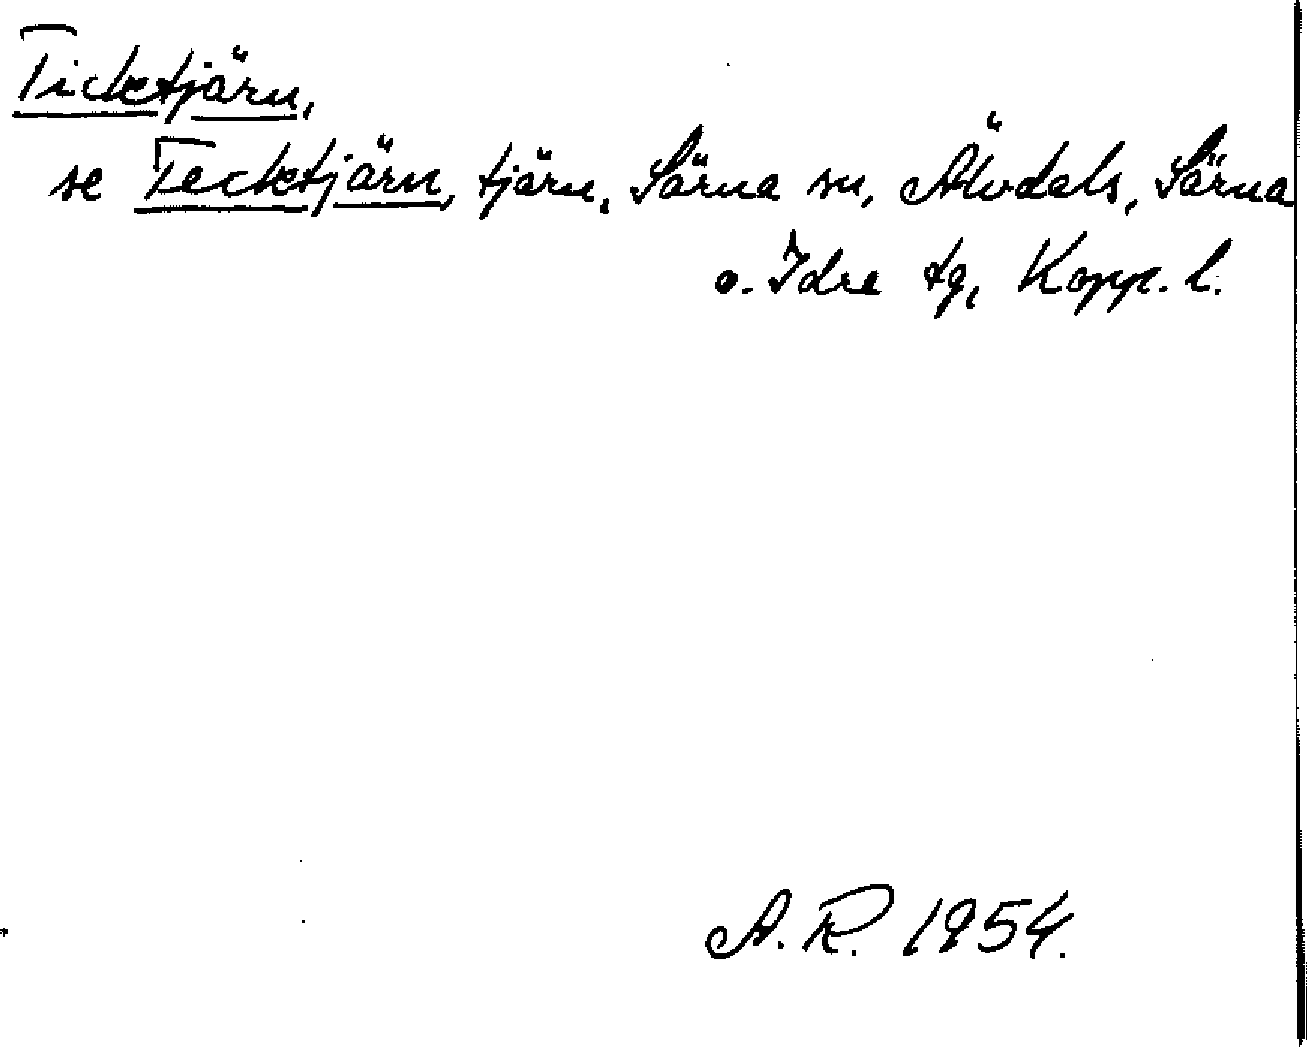 Ticktjärn,
se Tecktjärn, tjärn, Särna sn, Älvdals, Särna
o. Idre tg, Kopp. l.
A. R. 1954.